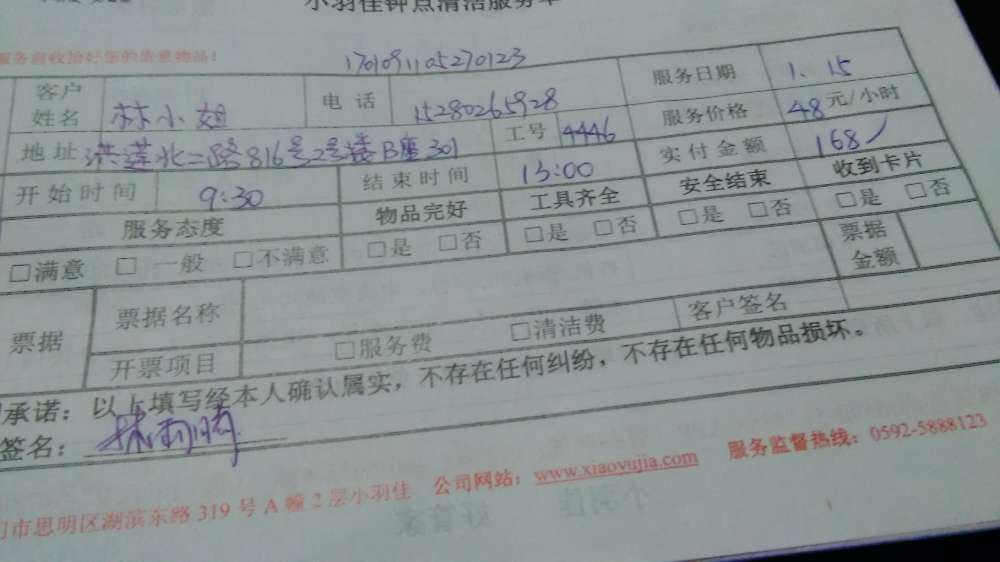 小羽佳钟点清洁服务单
服务前收拾好您的贵重物品!
1701091105270123
客户姓名 林小姐 电话 15280265928 服务日期 1.15
地址 洪莲北二路816号2号楼B座301 工号 4446 服务价格 48元/小时
开始时间 9:30 结束时间 13:00 实付金额 168
服务态度 物品完好 工具齐全 安全结束 收到卡片
□满意 □一般 □不满意 □是 □否 □是 □否 □是 □否 □是 □否
票据 票据名称 票据金额
开票项目 □服务费 □清洁费 客户签名
承诺:以上填写经本人确认属实,不存在任何纠纷,不存在任何物品损坏。
签名:
门市思明区湖滨东路319号A幢2层小羽佳 公司网站:www.xiaoyujia.com 服务监督热线:0592-5888123